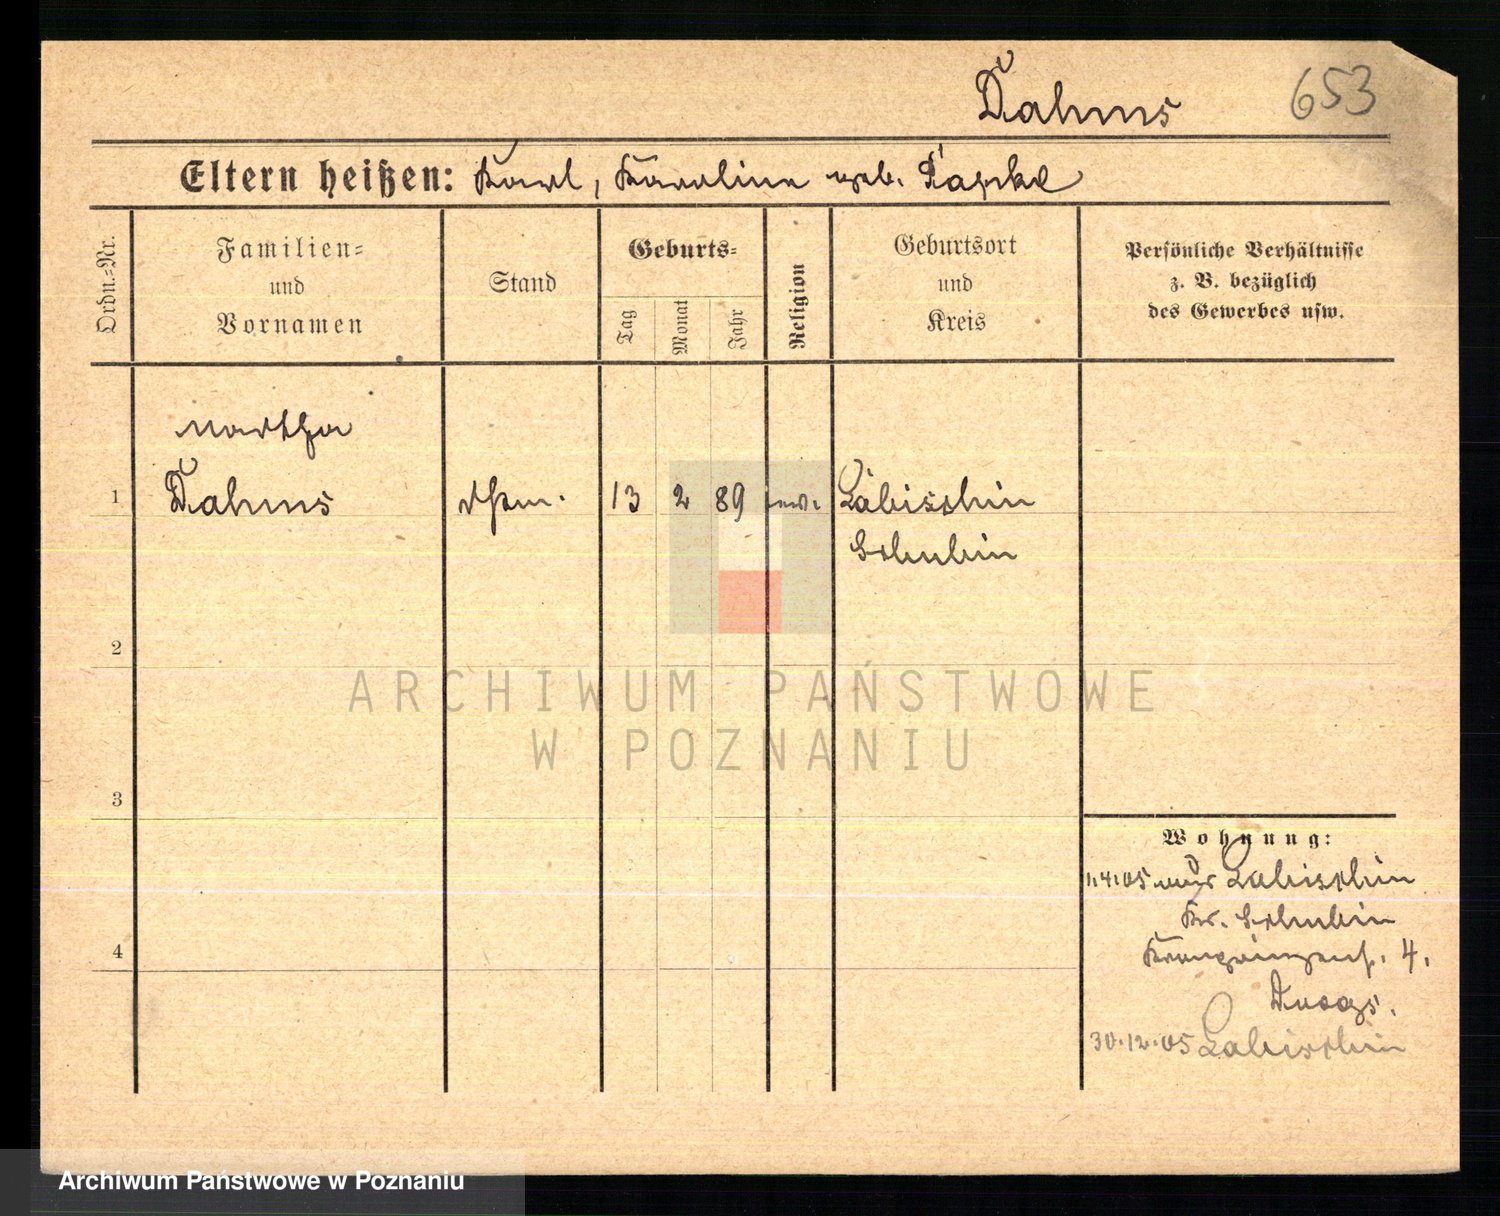 Dahms 653
Eltern heißen: Karl, Karoline geb.
Ordn.-Nr.
Familien-
und
Vornamen
Stand
Geburts-
Tag
Monat
Jahr
Religion
Geburtsort
und
Kreis
Persönliche Verhältnisse
z. B. bezüglich
des Gewerbes usw.
Martha
1 Dahms 13 2 89 ev. Labischin
Schubin
2
ARCHIWUM PAŃSTWOWE
W POZNANIU
3
Wohnung:
1.4.05 Labischin
Kr. Schubin
4
Kronprinzenst. 4.
30.12.05 Labischin
Archiwum Państwowe w Poznaniu